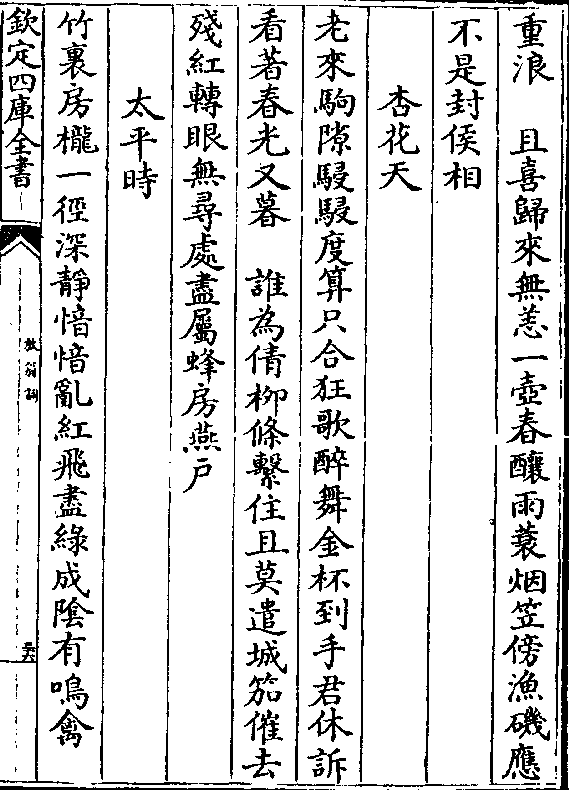 重浪　且喜歸來無恙一壺春釀雨蓑烟笠傍漁磯應
不是封侯相
杏花天
老來駒隙駸駸度算只合狂歌醉舞金杯到手君休訴
看著春光又暮　誰為倩柳條繫住且莫遣城笳催去
殘紅轉眼無尋處盡屬蜂房燕戶
太平時
竹裏房櫳一徑深靜愔愔亂紅飛盡綠成陰有鳴禽
欽定四庫全書
放翁詞